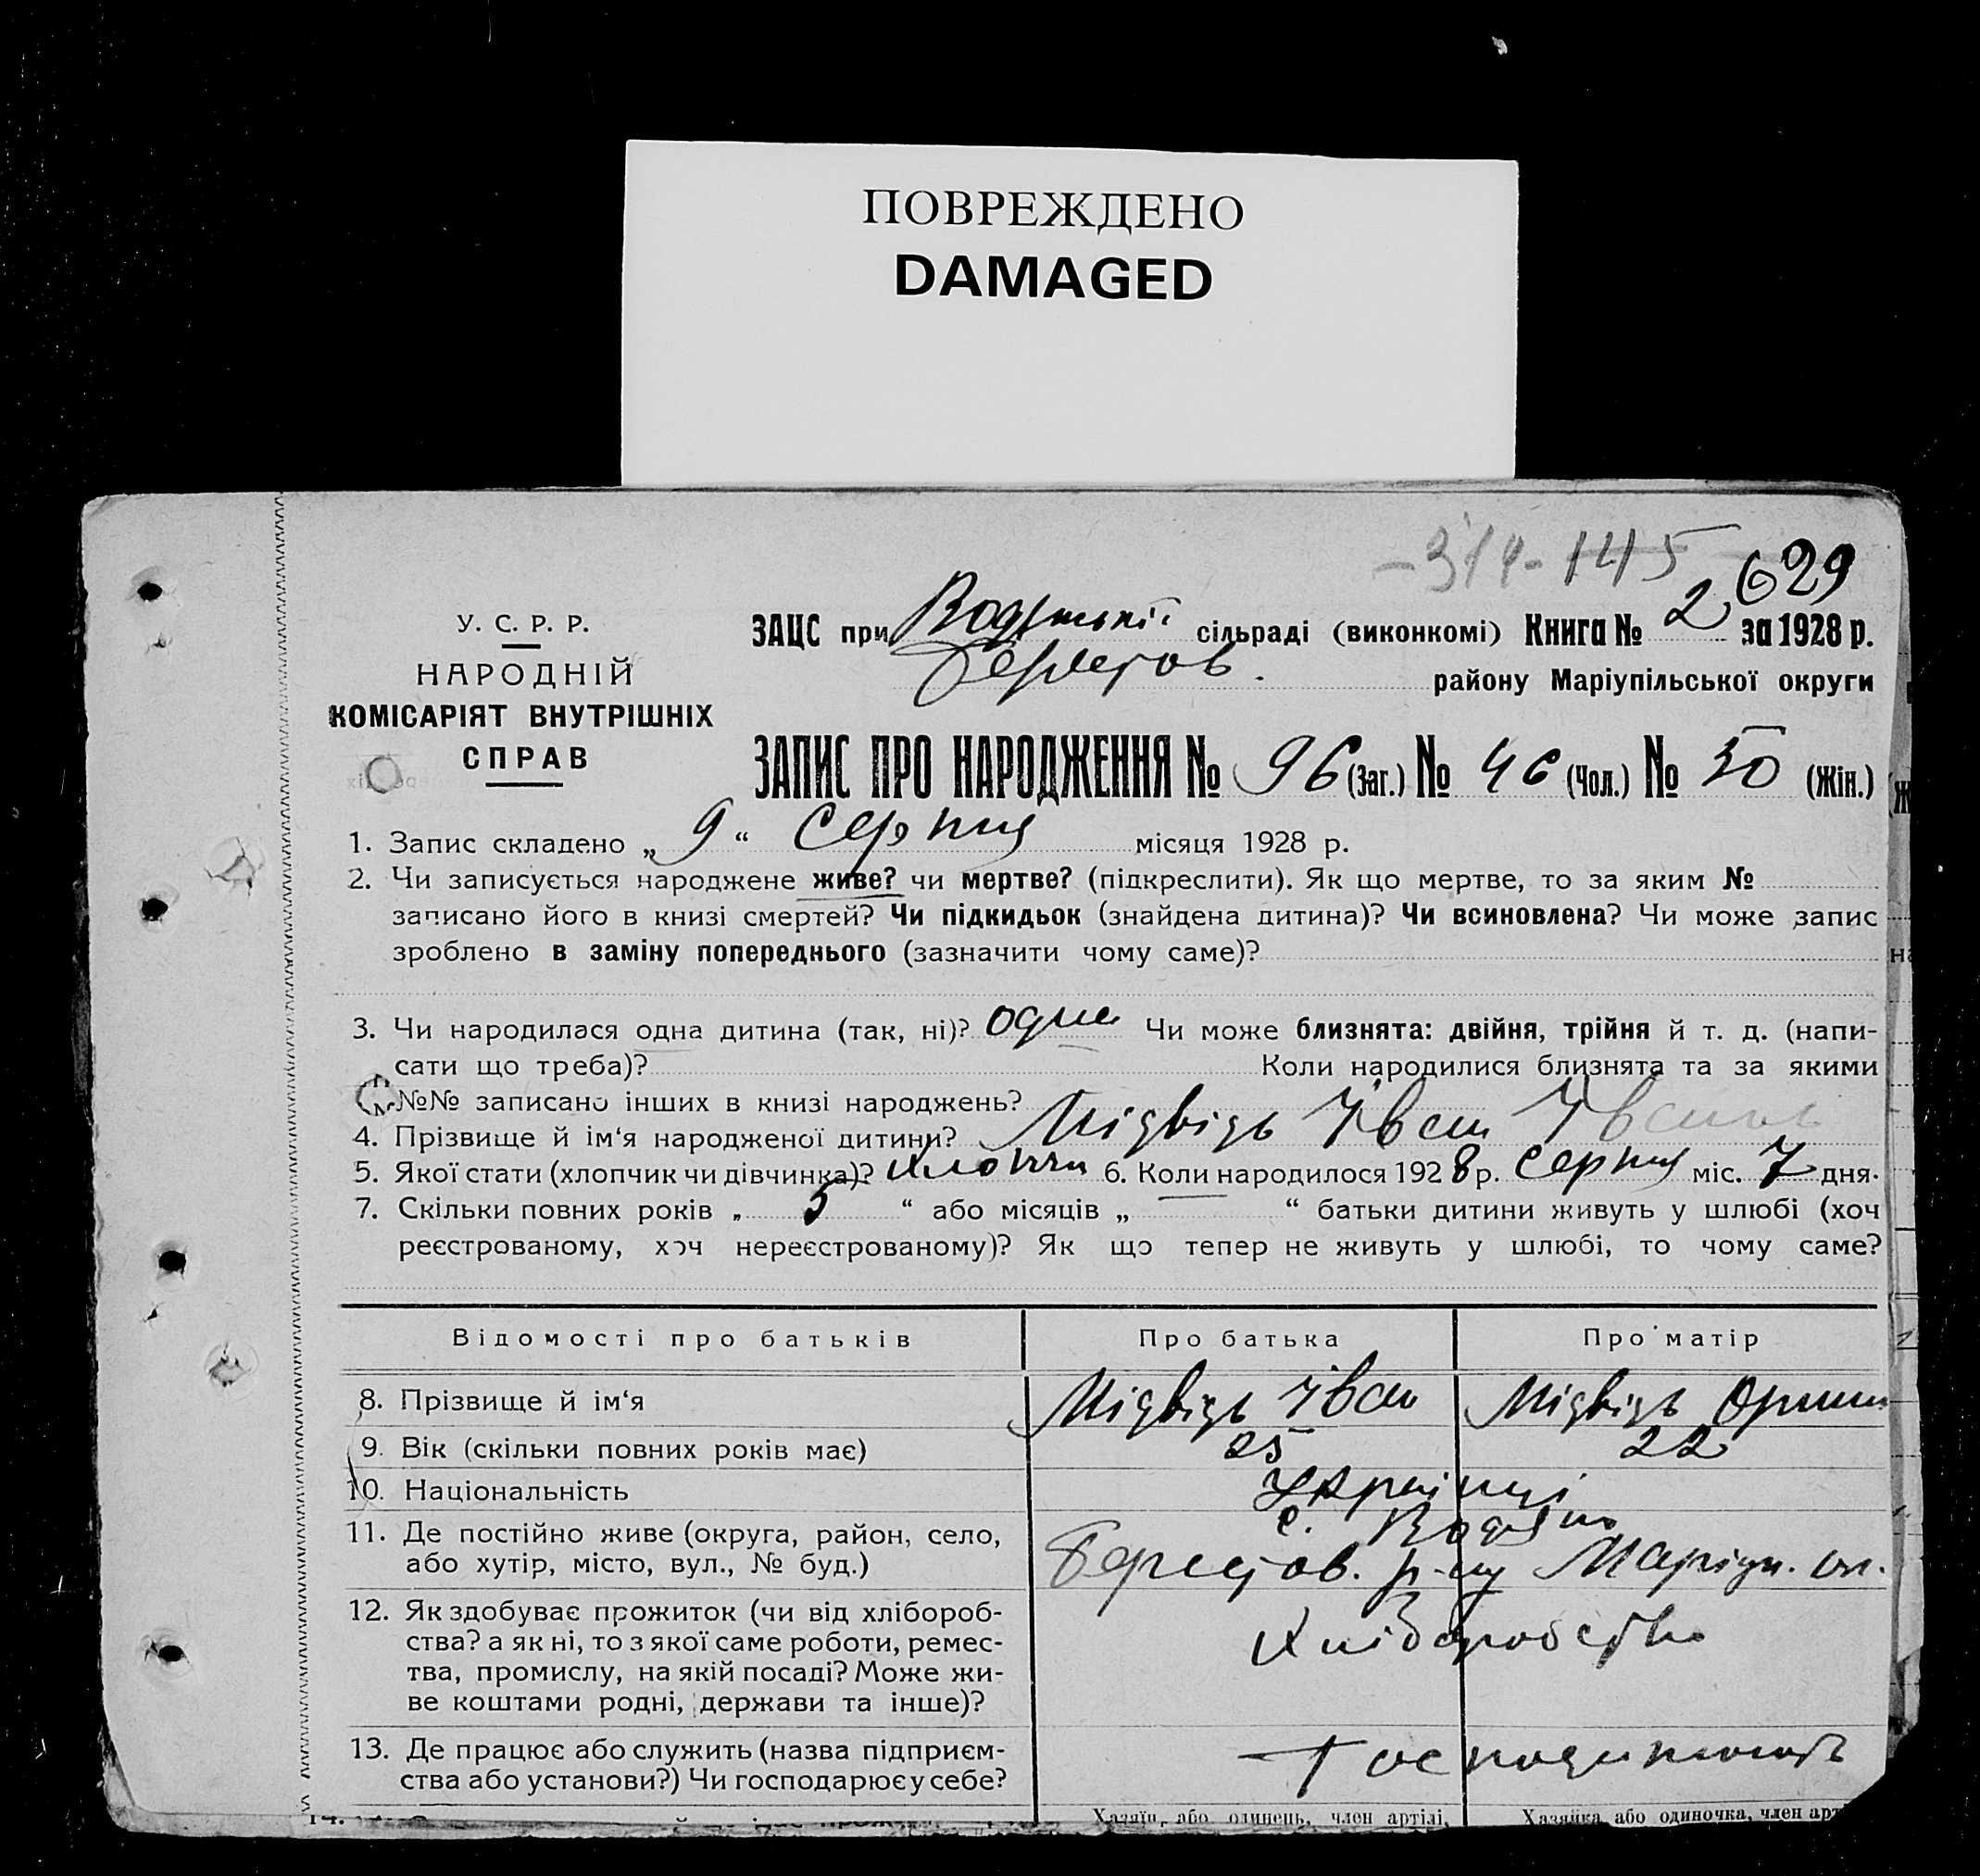 ПОВРЕЖДЕНО
DAMAGED
-314-145
629
У. С. Р. Р.
НАРОДНІЙ
КОМІСАРІЯТ ВНУТРІШНІХ
СПРАВ
ЗАЦС при сільраді (виконкомі) Книга № 2 за 1928 р.
Берестов. району Маріупільської округи
ЗАПИС ПРО НАРОДЖЕННЯ № 96 (заг.) № 46 (чол.) № 50 (жін.)
1. Запис складено „ 9 “ серпня місяця 1928 р.
2. Чи записується народжене живе? чи мертве? (підкреслити). Як що мертве, то за яким №
записано його в книзі смертей? Чи підкидьок (знайдена дитина)? Чи всиновлена? Чи може запис
зроблено в заміну попереднього (зазначити чому саме)?
3. Чи народилася одна дитина (так, ні)? одна Чи може близнята: двійня, трійня й т. д. (напи-
сати що треба)? Коли народилися близнята та за якими
№№ записано інших в книзі народжень?
4. Прізвище й ім‘я народженої дитини? Мідвідь Іван Іванов
5. Якої стати (хлопчик чи дівчинка)? хлопчик 6. Коли народилося 1928 р. серпня міс. 7 дня.
7. Скільки повних років „ 5 “ або місяців „ — “ батьки дитини живуть у шлюбі (хоч
реєстрованому, хоч нереєстрованому)? Як що тепер не живуть у шлюбі, то чому саме?
Відомості про батьків Про батька Про матір
8. Прізвище й ім‘я Мідвідь Іван Мідвідь Орина
9. Вік (скільки повних років має) 25 22
10. Національність Українці
11. Де постійно живе (округа, район, село, с. Водяно
або хутір, місто, вул., № буд.) Берестов. р-ну Маріуп. ок.
12. Як здобуває прожиток (чи від хлібороб-
ства? а як ні, то з якої саме роботи, ремес- Хліборобство
тва, промислу, на якій посаді? Може жи-
ве коштами родні, держави та інше)?
13. Де працює або служить (назва підприєм- Господарюють
ства або установи?) Чи господарює у себе?
14. Хазяїн, або одинець, член артілі, Хазяйка або одиночка, член арт